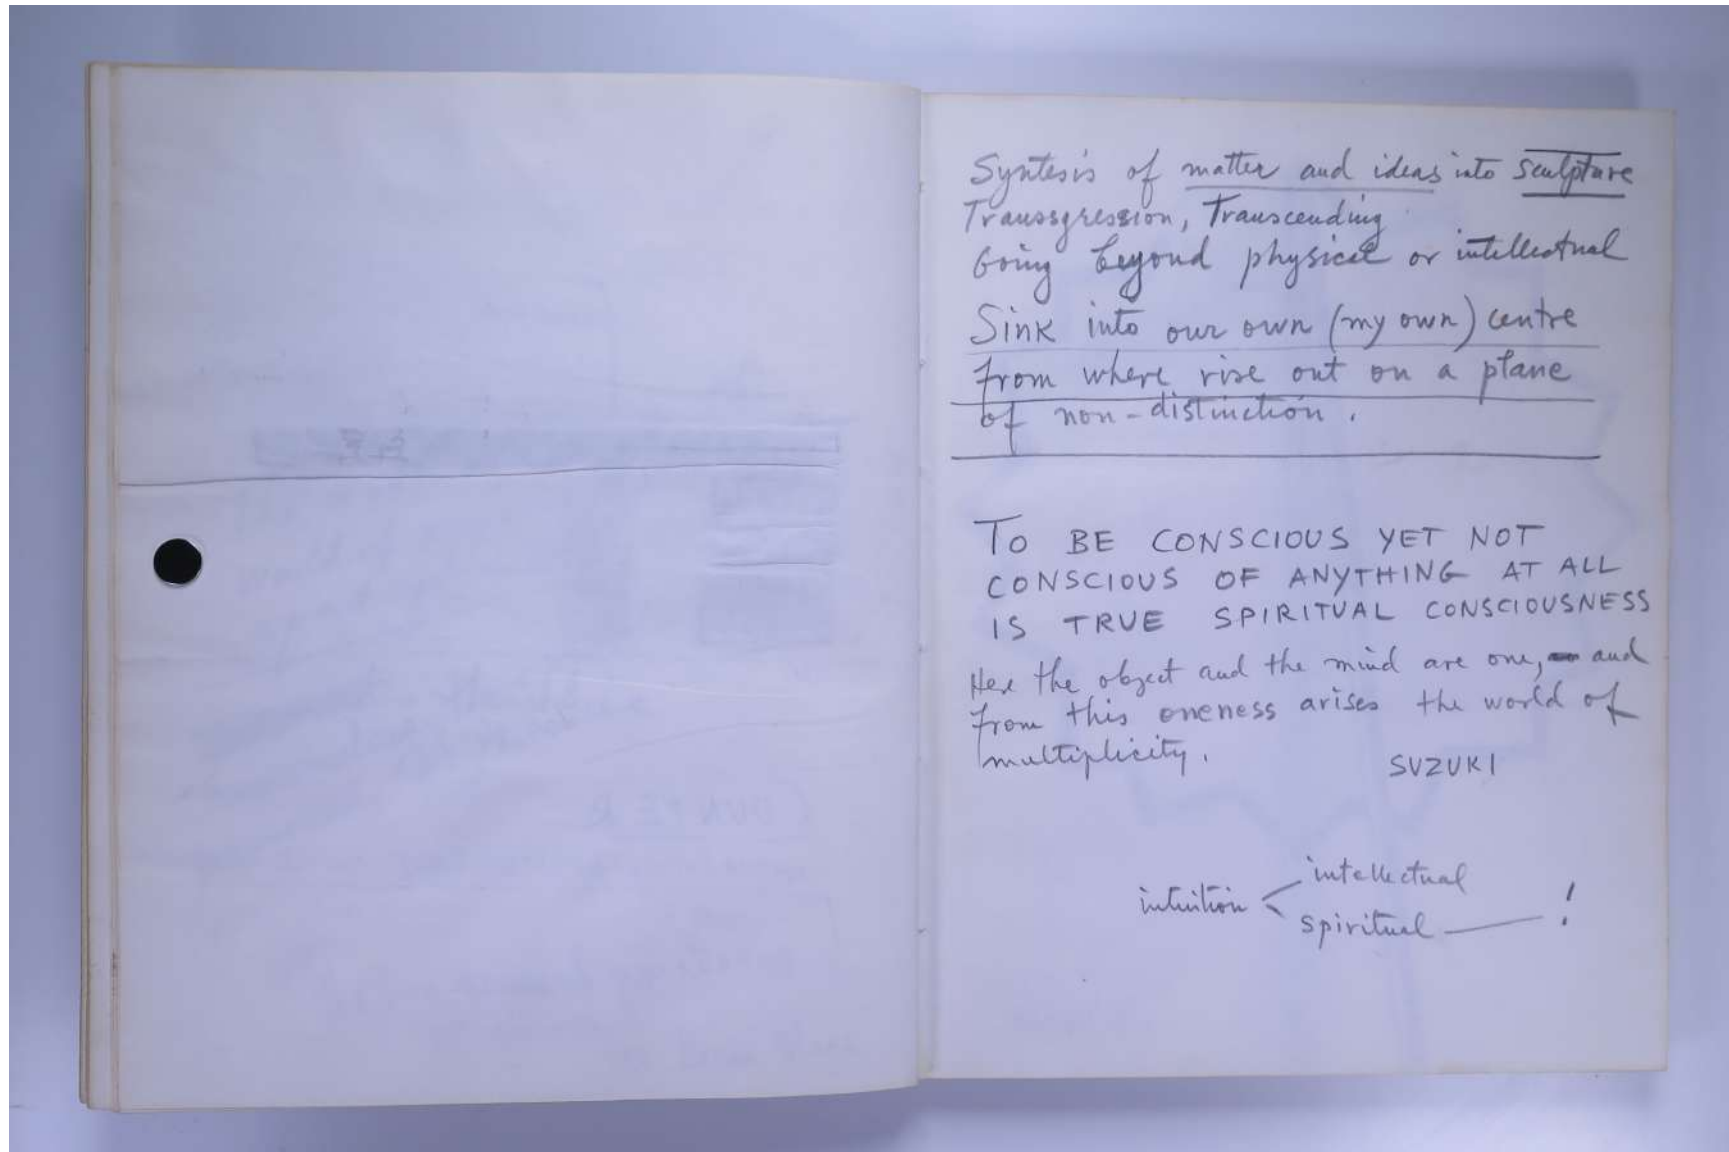 Syntesis of matter and ideas into sculpture
Transsgression, Transcending
Going beyond physical or intellectual
Sink into our own (my own) centre
from where rise out on a plane
of non-distinction.
TO BE CONSCIOUS YET NOT
CONSCIOUS OF ANYTHING AT ALL
IS TRUE SPIRITUAL CONSCIOUSNESS
Here the object and the mind are one, and
from this oneness arises the world of
multiplicity.
SUZUKI
intellectual
intuition
spiritual — !